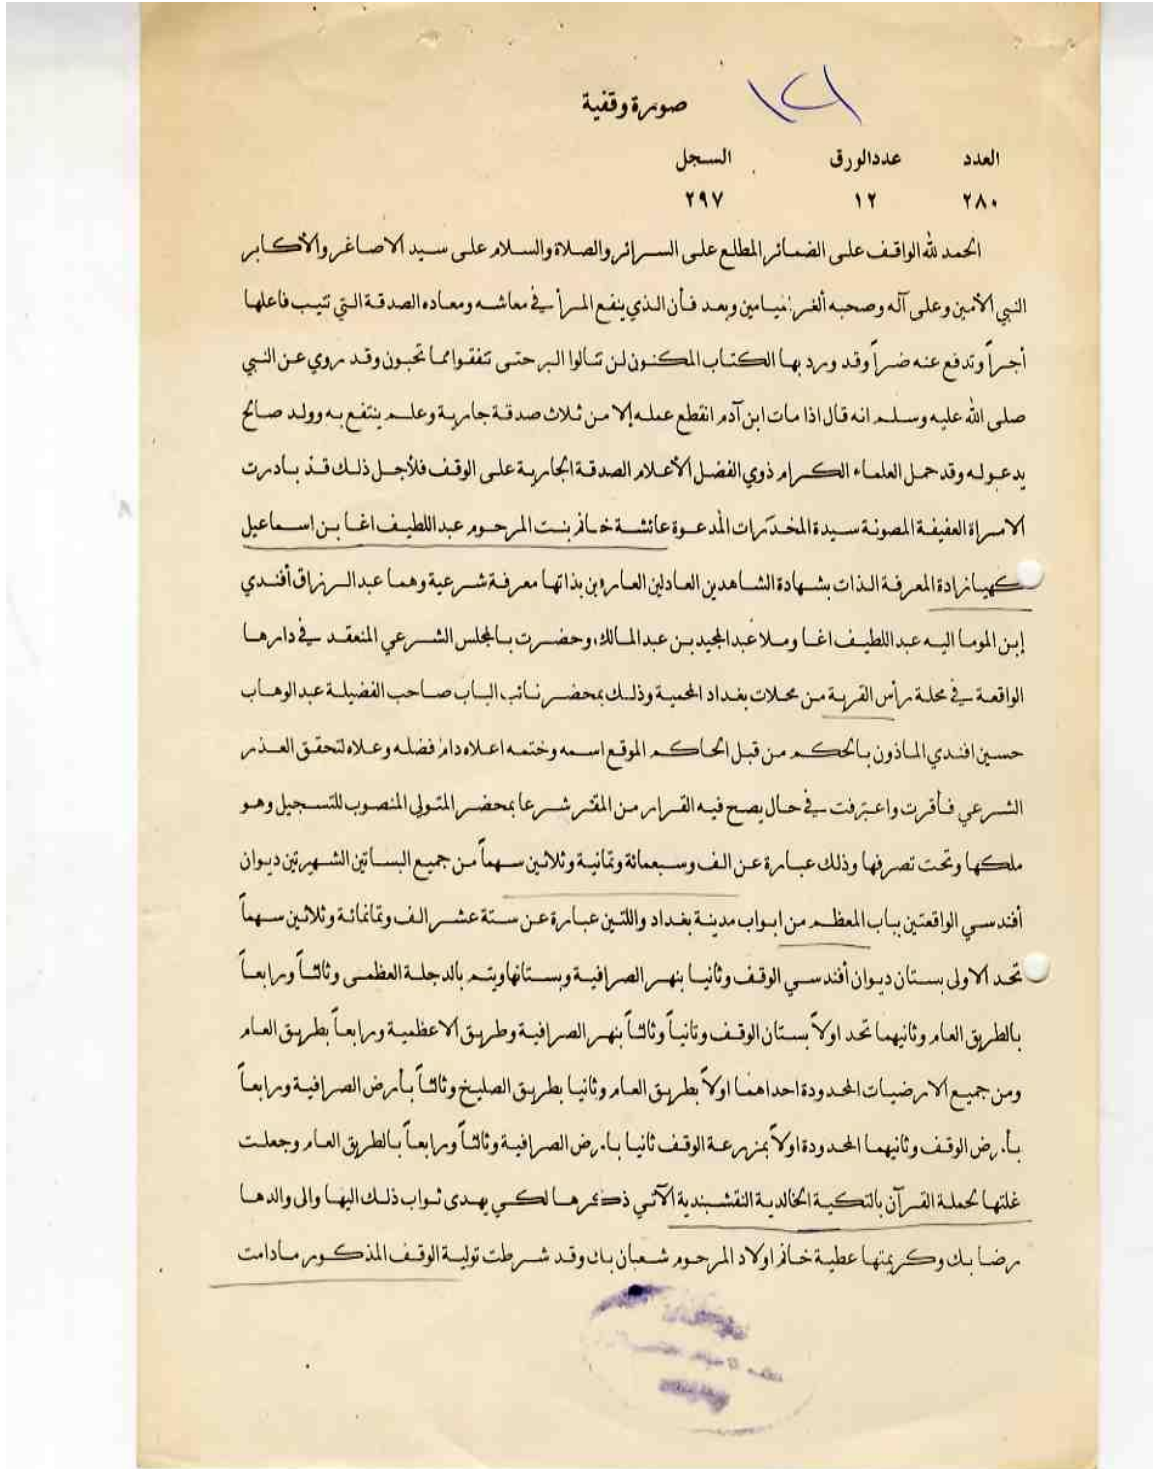 صورة وقفية
العدد عدد الورق السجل
٢٨٠ ١٢ ٢٩٧
الحمد لله الواقف على الضمائر المطلع على السرائر والصلاة والسلام على سيد الاصاغر والأكابر
النبي الأمين وعلى آله وصحبه ألغر الميامين وبعد فأن الذي ينفع المرأ في معاشه ومعاده الصدقة التي تثيب فاعلها
أجراً وتدفع عنه ضراً وقد ورد بها الكتاب المكنون لن تنالوا البر حتى تنفقوا مما تحبون وقد روي عن النبي
صلى الله عليه وسلم انه قال اذا مات ابن آدم انقطع عمله إلا من ثلاث صدقة جارية وعلم ينتفع به وولد صالح
يدعو له وقد حمل العلماء الكرام ذوي الفضل الأعلام الصدقة الجارية على الوقف فلأجل ذلك قد بادرت
الامرأة العفيفة المصونة سيدة المخدرات المدعوة عائشة خانم بنت المرحوم عبد اللطيف اغا بن اسماعيل
كهيازادة المعرفة الذات بشهادة الشاهدين العادلين العارفين بذاتها معرفة شرعية وهما عبد الرزاق أفندي
إبن الموما اليه عبد اللطيف اغا وملا عبد المجيد بن عبد المالك، وحضرت بالمجلس الشرعي المنعقد في دارها
الواقعة في محلة رأس القرية من محلات بغداد المحمية وذلك بمحضر نائب الباب صاحب الفضيلة عبد الوهاب
حسين افندي الماذون بالحكم من قبل الحاكم الموقع اسمه وختمه اعلاه دام فضله وعلاه لتحقق العذر
الشرعي فأقرت واعترفت في حال يصح فيه القرار من المقر شرعا بمحضر المتولى المنصوب للتسجيل وهو
ملكها وتحت تصرفها وذلك عبارة عن الف وسبعمائة وثمانية وثلاثين سهماً من جميع البساتين الشهيرتين ديوان
أفندسي الواقعتين بباب المعظم من ابواب مدينة بغداد واللتين عبارة عن ستة عشر الف وثمانمائة وثلاثين سهماً
تحد الاولى بستان ديوان أفندسي الوقف وثانيا بنهر الصرافية وبستانها ويتم بالدجلة العظمى وثالثاً ورابعاً
بالطريق العام وثانيهما تحد اولاً بستان الوقف وثانياً وثالثاً بنهر الصرافية وطريق الاعظمية ورابعاً بطريق العام
ومن جميع الارضيات المحدودة احداهما اولاً بطريق العام وثانيا بطريق الصليخ وثالثاً بأرض الصرافية ورابعاً
بأرض الوقف وثانيهما المحدودة اولاً بمزرعة الوقف ثانيا بأرض الصرافية وثالثاً ورابعاً بالطريق العام وجعلت
غلتها لحملة القرآن بالتكية الخالدية النقشبندية الآتي ذكرها لكي يهدى ثواب ذلك اليها والى والدها
رضا بك وكريمتها عطية خانم اولاد المرحوم شعبان بك وقد شرطت تولية الوقف المذكور مادامت